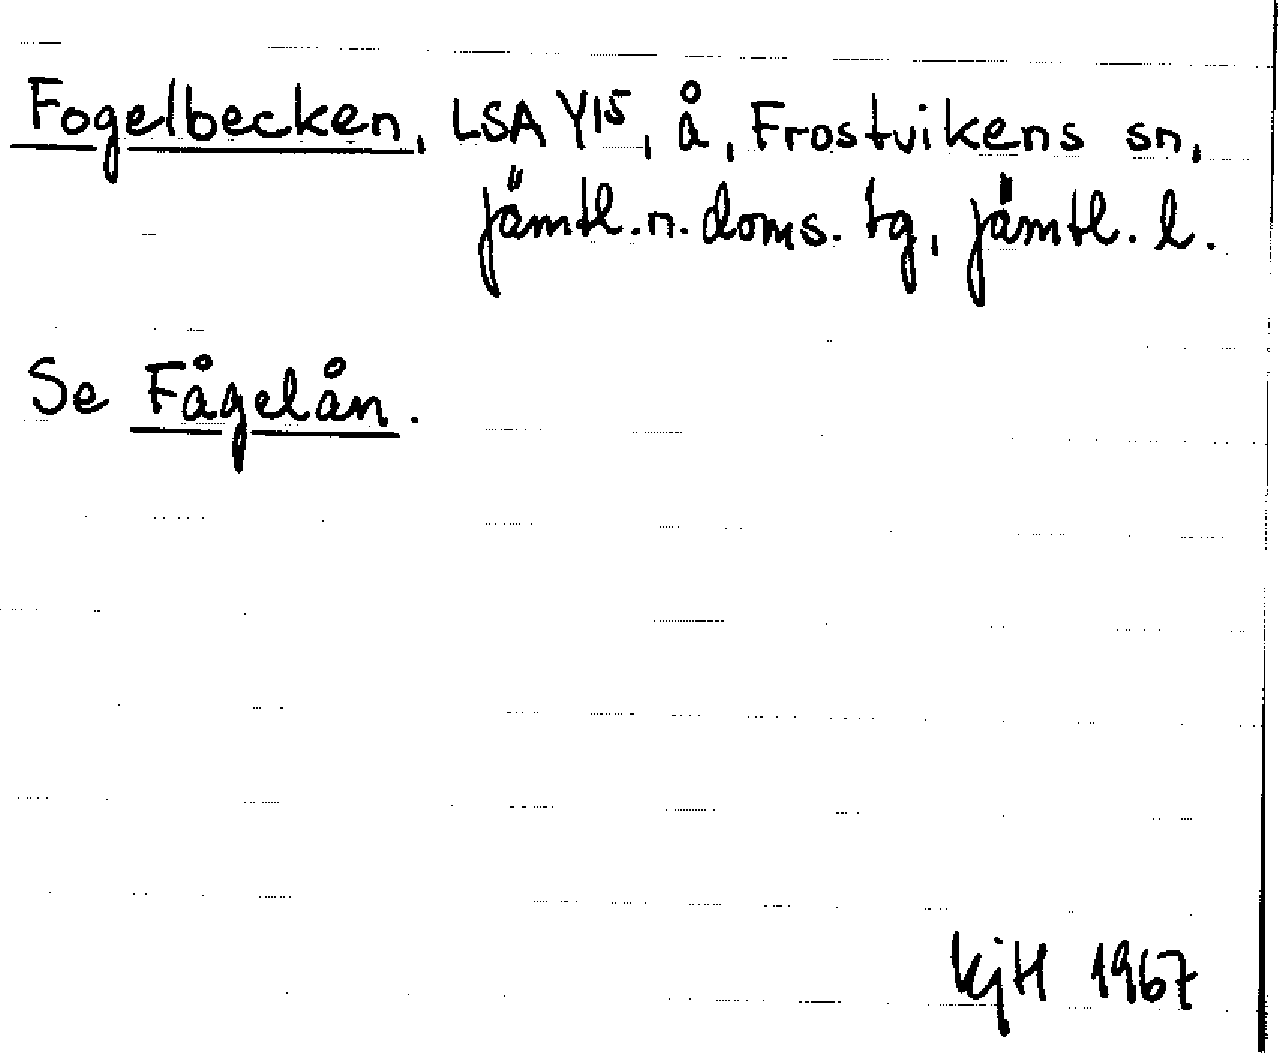 Fogelbecken, LSA Y15, å, Frostvikens sn,
jämtl. n. doms. tg, jämtl. l.
Se Fågelån.
kjH 1967